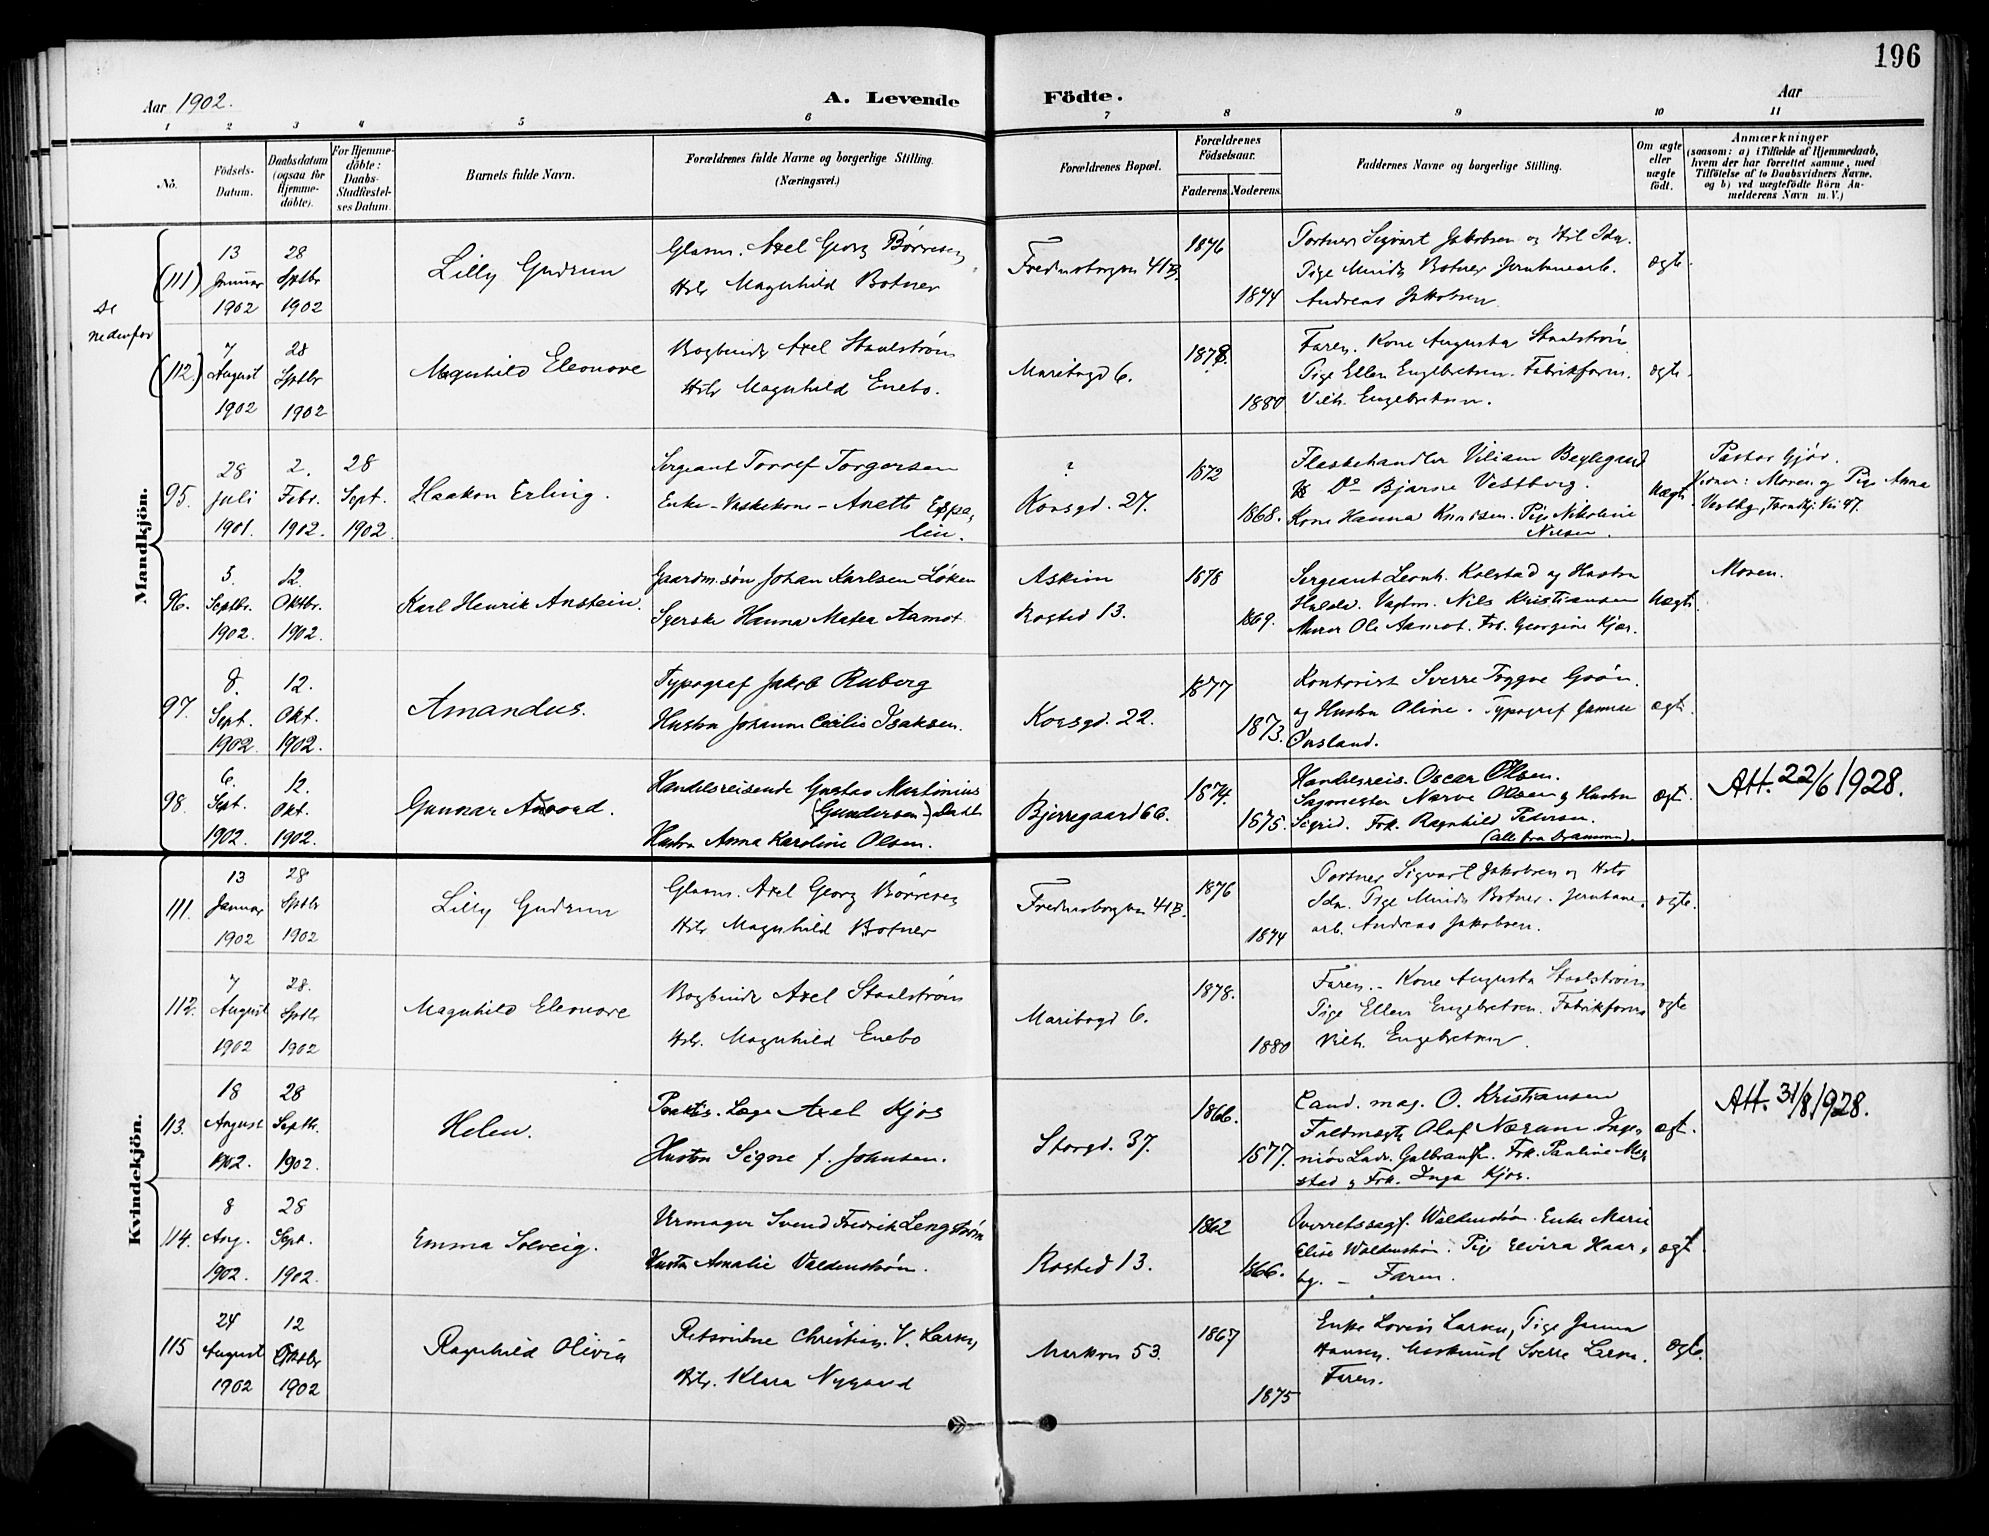 196
Aar 1902.
A. Levende Födte.
Aar
1 2 3 4 5 6 7 8 9 10 11
No.
Födsels-Datum.
Daabsdatum (ogsaa for Hjemmedöbte).
For Hjemmedöbte: Daabs-Stadfæstelses Datum.
Barnets fulde Navn.
Forældrenes fulde Navne og borgerlige Stilling. (Næringsvei.)
Forældrenes Bopæl.
Forældrenes Födselsaar.
Faderens. Moderens.
Faddernes Navne og borgerlige Stilling.
Om ægte eller uægte födt.
Anmærkninger (saasom: a) i Tilfælde af Hjemmedaab, hvem der har forrettet samme, med Tilföielse af to Daabsvidners Navne. og b) ved uægtefödte Börn Anmelderens Navn m. V.)
Mandkjön.
se nedenfor
(111)
13 Januar 1902
28 Sptbr 1902
Lilly Gudrun
Glasm. Axel Georg Børresen
Hstr Magnhild Botner
Fredensborgvn 41B.
1876
1874
Portner Sigvart Jakobsen og Hst Ida.
Pige Minda Botner. Jernbanearb.
Andreas Jakobsen.
ægte.
(112.)
7 August 1902
28 Sptbr 1902
Magnhild Eleonore
Bogbinder Axel Staalstrøm
Hstr Magnhild Enebo.
Maribogd 6.
1878.
1880
Faren. Kone Augusta Staalstrøm
Pige Ellen Engebretsen. Fabrikform.
Vilh. Engebretsen.
ægte.
95.
28 Juli 1901.
2. Febr. 1902.
28 Sept. 1902.
Haakon Erling.
Sergeant Torolf Torgersen
Enke-Vaskekone - Anette Eppelin.
?
Korsgd. 27.
1872
1868.
Flaskehandler Viliam
Do Bjarne Vestberg.
Kone Hanna Knudsen. Pige Nikoline
Nilsen.
Uægt
Pastor Gjør.
Moren og Pige Anna
96.
5. Septbr. 1902.
12. Oktbr. 1902.
Karl Henrik Anstein.
Gaardm.søn Johan Karlsen Løken
Syerske Hanna Matea Aamot.
Askim
Rosted 13.
1878
1869.
Sergeant Leonh. Kolstad og Hustru
Hulda. Vagtm. Nils Kristiansen
Murer Ole Aamot. Frk. Georgine Kjær.
Uægt.
Moren.
97.
8. Sept. 1902.
12. Okt. 1902.
Amandus.
Typograf Jakob Ruberg
Hustru Johanne Cecilie Isaksen.
Korsgd. 22.
1877
1873.
Kontorist Sverre Trygve Grøn.
og Hustru Oline. Typograf
ægt.
98.
6. Sept. 1902.
12. Okt. 1902.
Gunnar
Handelsreisende Gustav Martinius
(Gundersen)
Hustru Anna Karoline Olsen.
Bjerregaard 6a.
1874.
1875.
Handelsreis. Oscar Olsen.
Sagmester Narve Olsen og Hustru
Sigrid. Frk. Ragnhild Petersen.
(alle fra Drammen).
ægt.
Att. 22/6 1928.
Kvindekjön.
111.
13 Januar 1902
28 Sptbr 1902
Lilly Gudrun
Glasm. Axel Georg Børresen
Hstr Magnhild Botner
Fredensborgvn 41B.
1876
1874
Portner Sigvart Jakobsen og Hstr
Ida. Pige Minda Botner. Jernbane-
arb. Andreas Jakobsen.
ægte.
112.
7 August 1902
28. Sptbr 1902
Magnhild Eleonore
Bogbinder Axel Staalstrøm
Hstr. Magnhild Enebo
Maribogd 6.
1878.
1880
Faren. - Kone Augusta Staalstrøm
Pige Ellen Engebretsen. Fabrikform
Vilh. Engebretsen.
ægte
113.
18 August 1902.
28 Septbr. 1902.
Helen.
Praktis. Læge Axel Kjos
Hustru Signe f. Johnsen.
Storgd. 37.
1866.
1877.
Cand. mag. O. Kristiansen
Fuldmægt. Olaf Nærum. Inge-
niør Ladv. Frk. Pauline
og Frk. Inga Kjos.
ægt.
Att. 31/8 1928.
114.
8 Aug. 1902.
28 Sept. 1902.
Emma Solveig.
Urmager Svend Fredrik Lengstrøm
Hustru Amalie Valdenstrøm.
Rosted 13.
1862
1866.
Overretssagf. Waldenstrøm. Enke Marie
Elise Waldenstrøm. Pige Elvira Haar-
bg. - Faren.
ægt
115
24 August 1902
12 Oktbr 1902
Ragnhild Olivia
Retsvidne Christian V. Larsen
Hstr. Klara Nygaard
Markvn 53.
1867
1875
Enke Lovise Larsen, Pige Janna
Hansen. Maskinist Sverre Larsen.
Faren.
ægte.